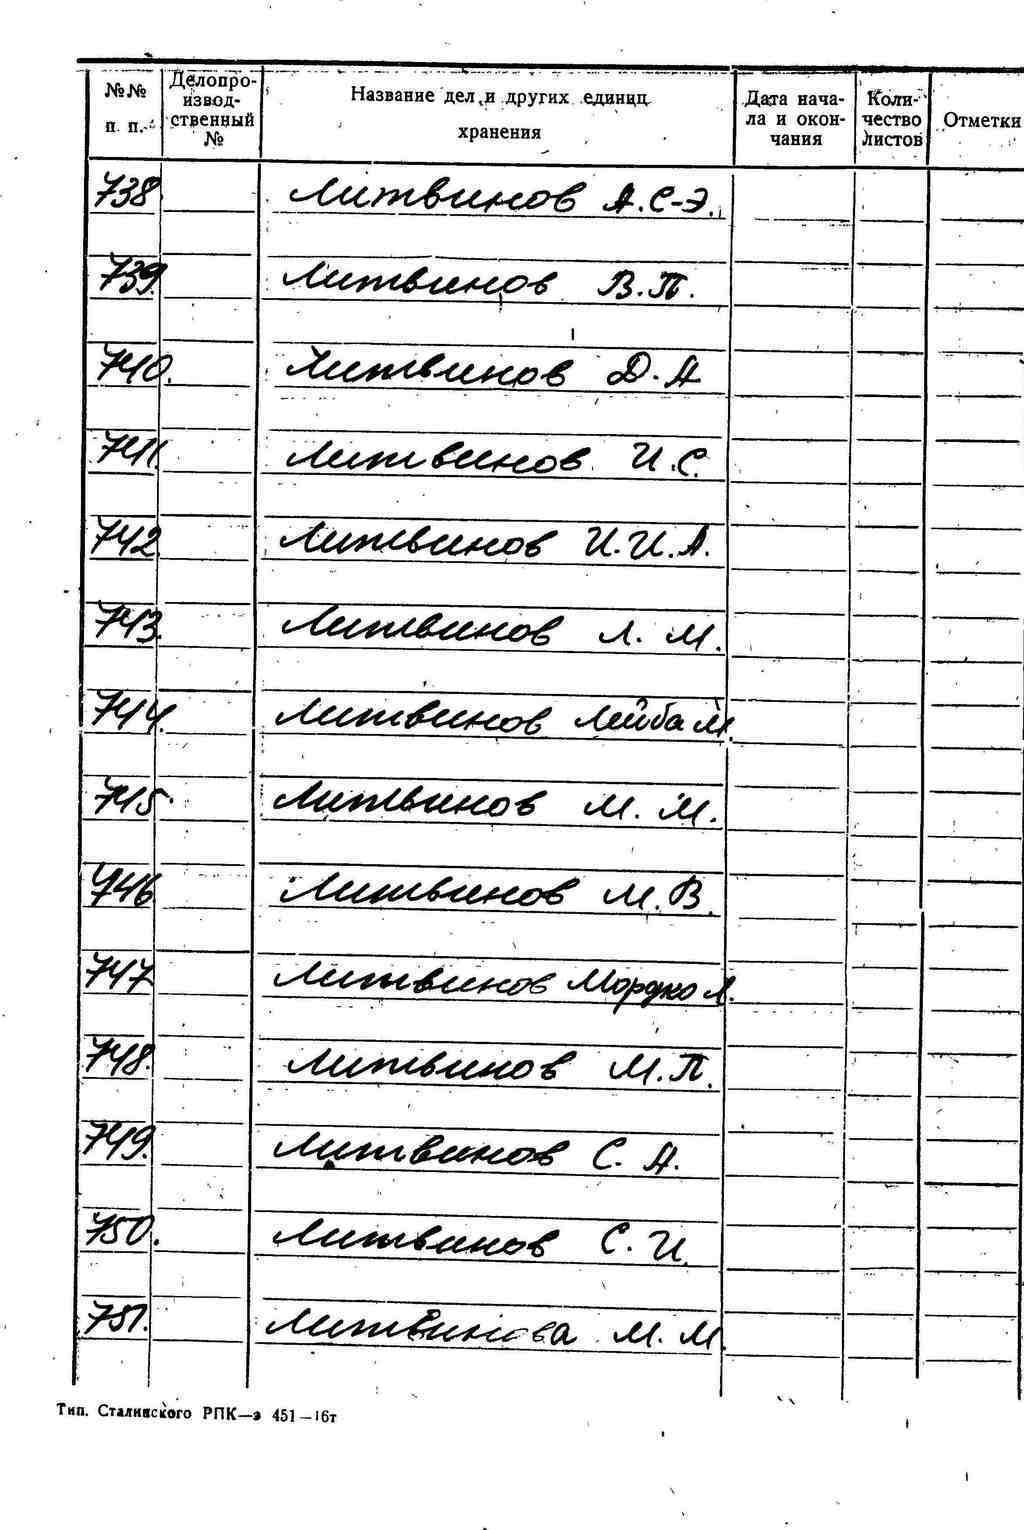 №№ п. п.
Делопроизводственный №
Название дел и других единиц хранения
Дата начала и окончания
Количество листов
Отметки
738. Литвинов А.С-Э.
739. Литвинов В.П.
740. Литвинов Д.А
741. Литвинов И.С.
742. Литвинов И.И.А.
743. Литвинов Л.М.
744. Литвинов Лейба М.
745. Литвинов М.М.
746. Литвинов М.В.
747. Литвинов Мордко Л.
748. Литвинов М.П.
749. Литвинов С.А.
750. Литвинов С.И.
751. Литвинова М.М.
Тип. Сталинского РПК—з 451—16т